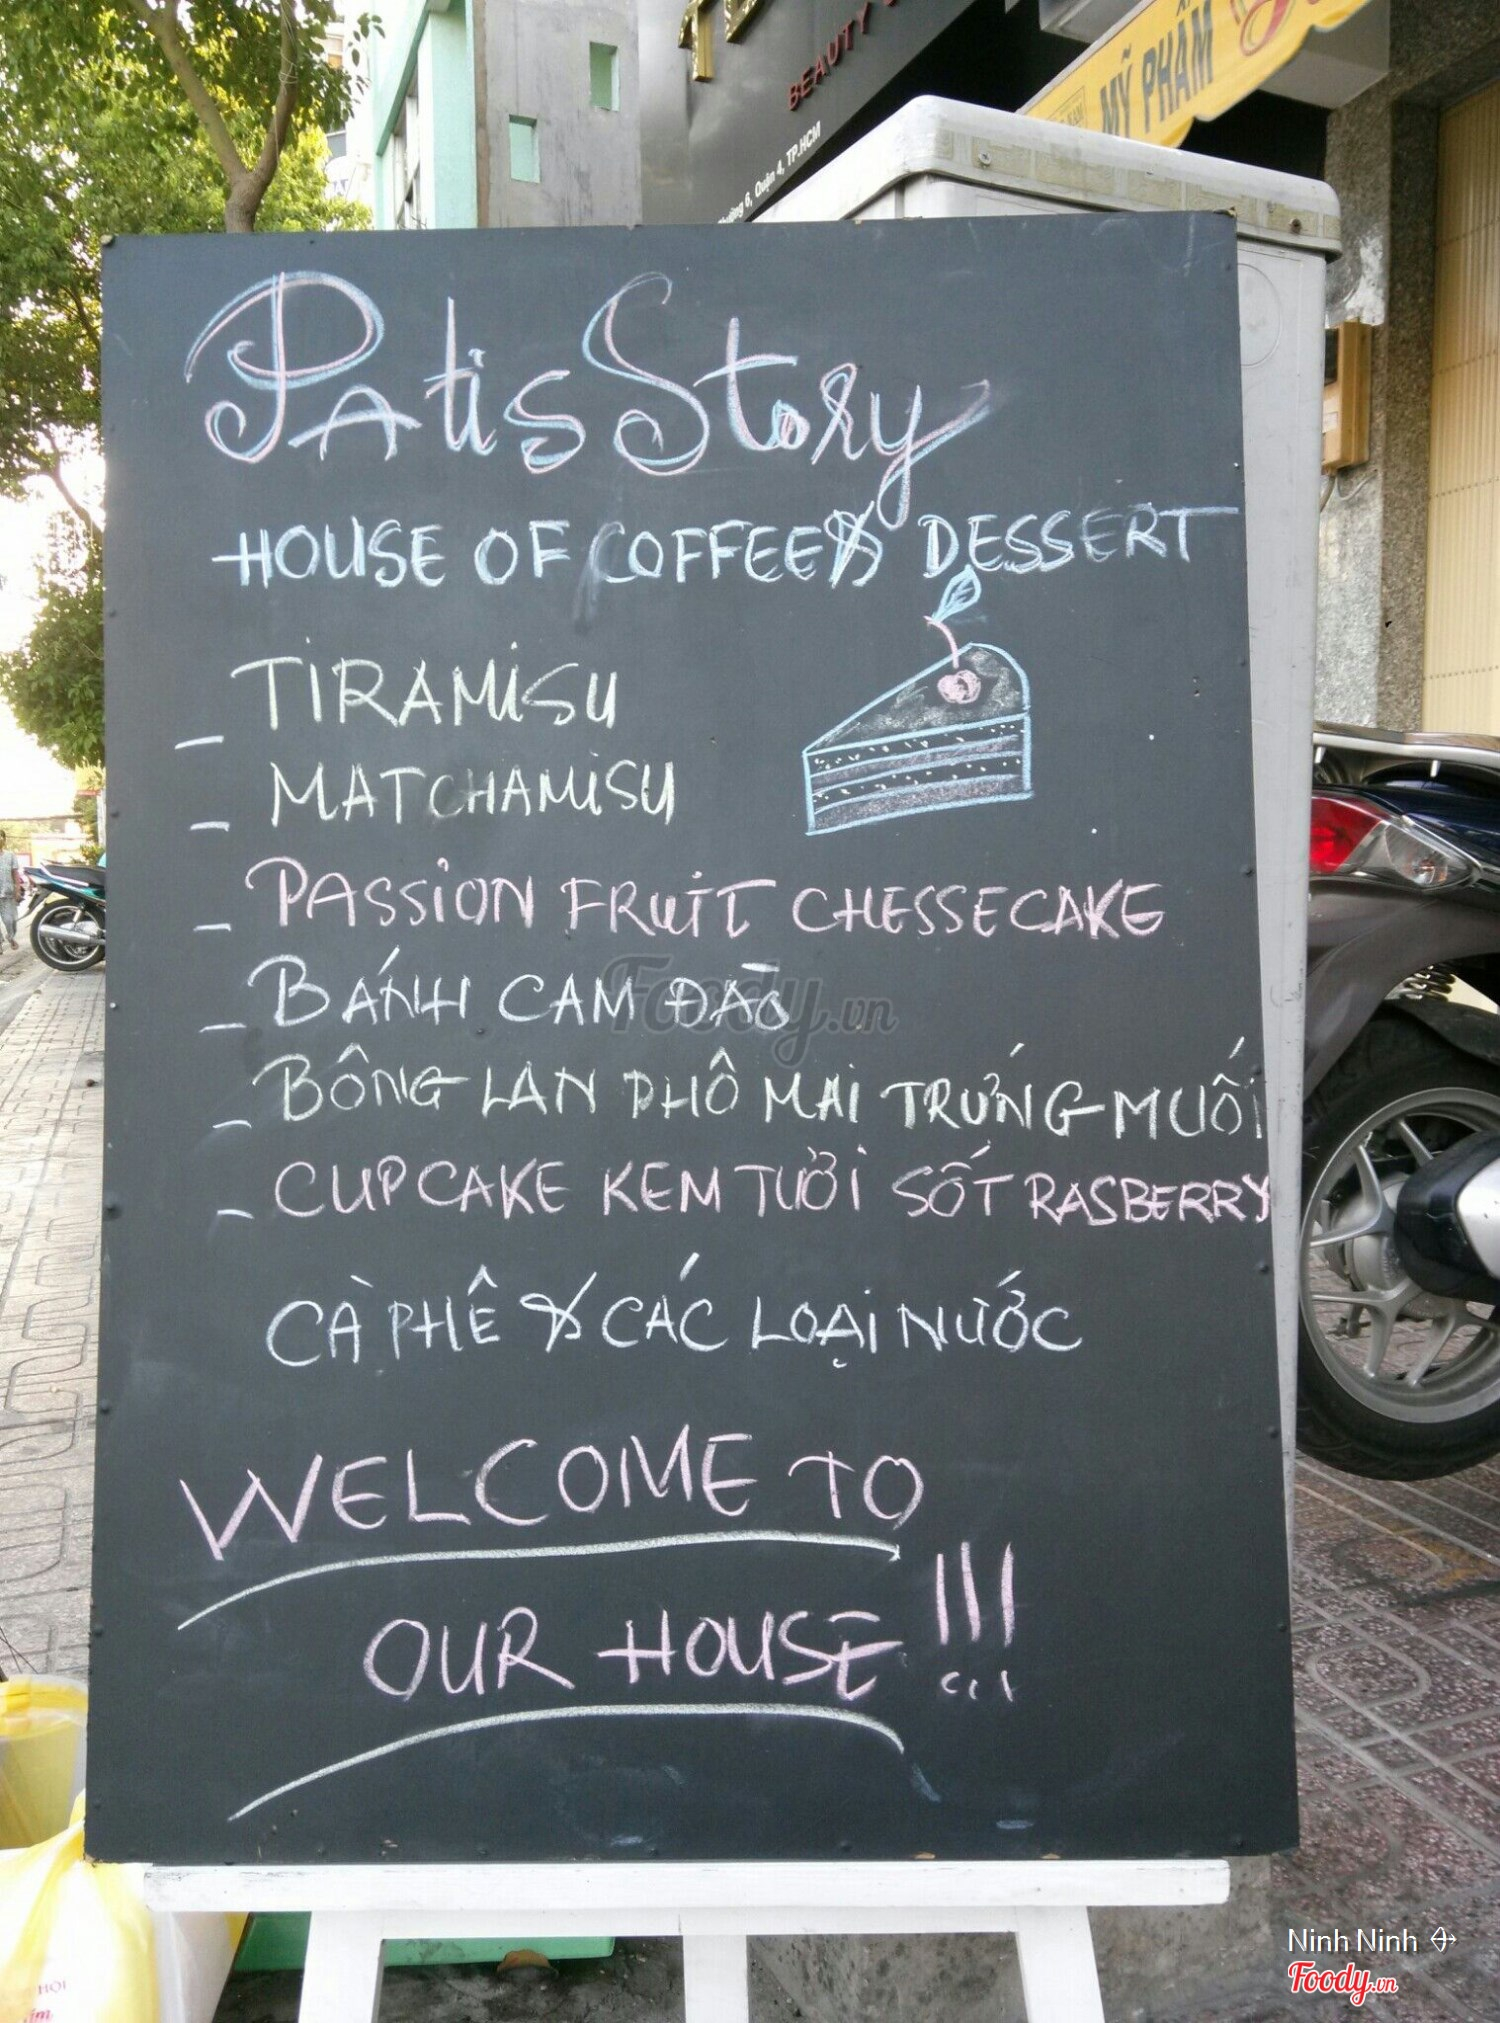 BEAUTY
MỸ PHẨM
Phường 6, Quận 4, TP.HCM
PatisStory
HOUSE OF COFFEE & DESSERT
TIRAMISU
_ MATCHAMISU
_ PASSION FRUIT CHESSECAKE
_ BÁNH CAM ĐÀO
_ BÔNG LAN PHÔ MAI TRỨNG MUỐI
_ CUPCAKE KEM TƯỞI SỐT RASBERRY
CÀ PHÊ & CÁC LOẠI NƯỚC
WELCOME TO
OUR HOUSE !!!
Foody.vn
Ninh Ninh
Foody.vn